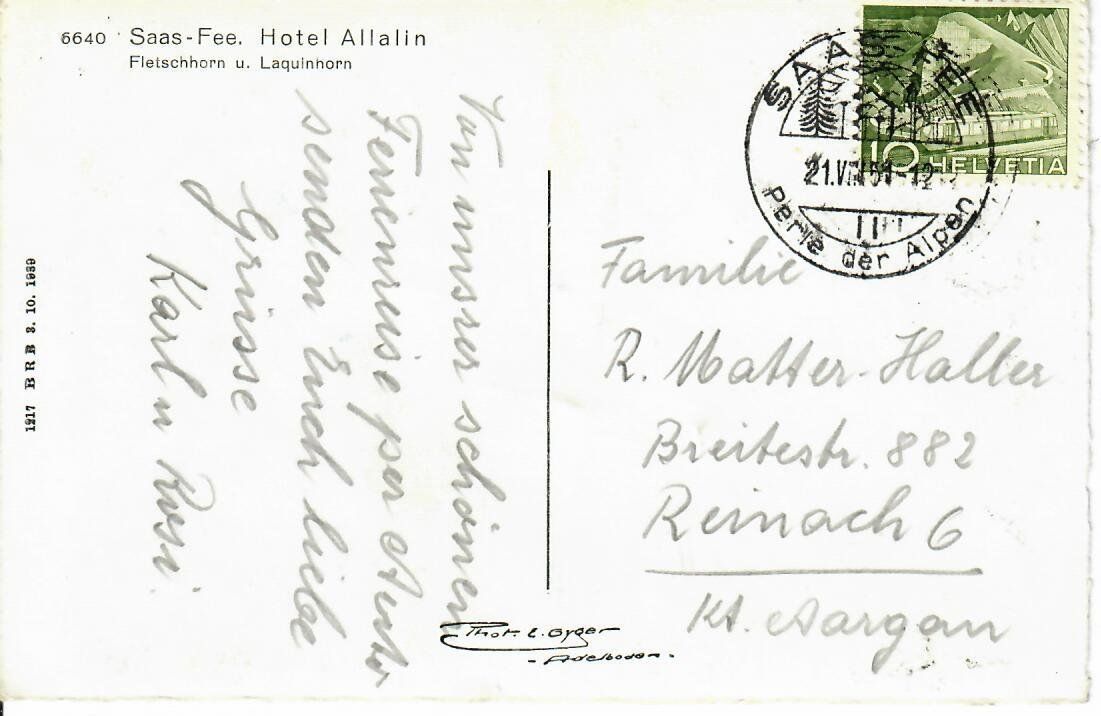 6640 Saas-Fee. Hotel Allalin
Fletschhorn u. Laquinhorn
Von unsrer schönen
Ferienreise per Auto
senden Euch liebe
Grüsse
Karl u Rosi
1217 BRB 3. 10. 1939
Phot. E. Gyger
- Adelboden -
SAAS-FEE
21.VIII 51-12
Perle der Alpen
10 HELVETIA
Familie
R. Matter-Haller
Breitestr. 882
Reinach 6
Kt. Aargau